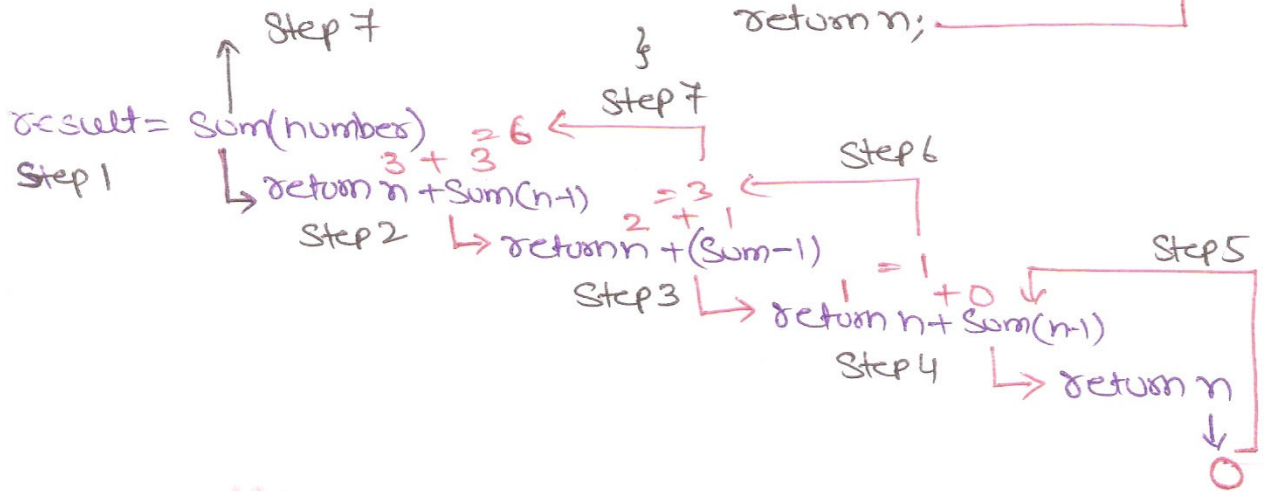 Step 7
return n;
}
Step 7
result = sum(number)
= 6
Step 1
3 + 3
return n + sum(n-1)
= 3
Step 6
Step 2
2 + 1
return n + (sum-1)
= 1
Step 5
Step 3
1 + 0
return n + sum(n-1)
Step 4
return n
0